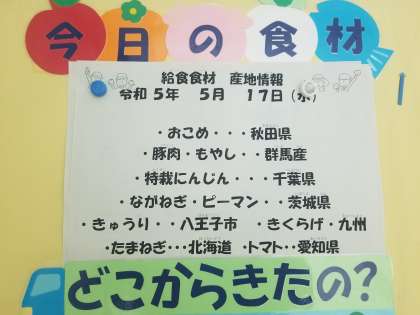 今日の食材
給食食材 産地情報
令和 5年 5月 17日（水）
・おこめ・・・秋田県
・豚肉・もやし・・群馬産
・特栽にんじん・・・千葉県
・ながねぎ・ピーマン・・茨城県
・きゅうり・・八王子市 ・きくらげ・九州
・たまねぎ・・・北海道 ・トマト・・愛知県
どこからきたの?